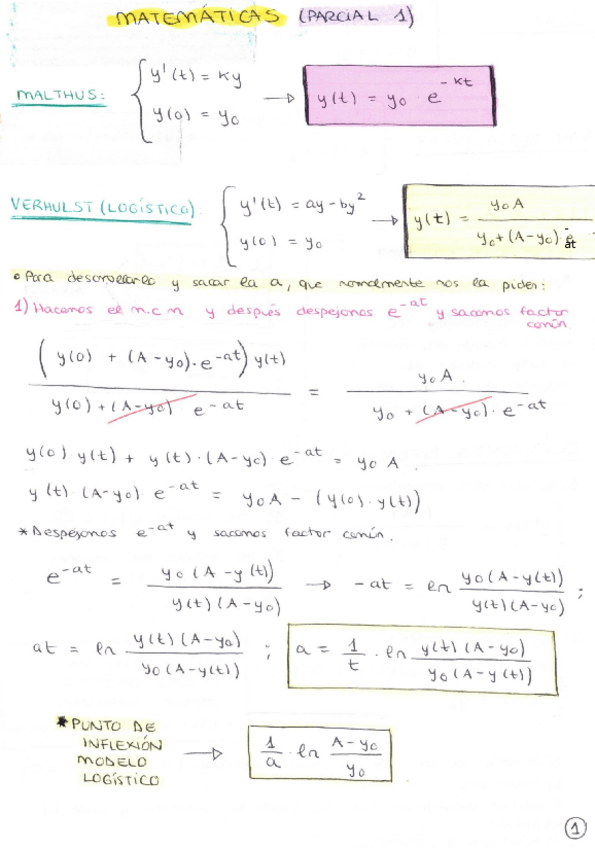 MATEMÁTICAS (PARCIAL 1)
MALTHUS: { y'(t) = Ky ; y(0) = y₀ → y(t) = y₀ · e^(-Kt)
VERHULST (LOGÍSTICO): { y'(t) = ay - by² ; y(0) = y₀ → y(t) = y₀A / (y₀ + (A - y₀) · e^(-at))
• Para desarrollarlo y sacar la a, que normalmente nos la piden:
1) Hacemos el m.c.m y después despejamos e^(-at) y sacamos factor
común
((y(0) + (A - y₀) · e^(-at)) y(t)) / (y(0) + (A - y₀) · e^(-at)) = y₀A. / (y₀ + (A - y₀) · e^(-at))
y(0) · y(t) + y(t) · (A - y₀) · e^(-at) = y₀ A.
y(t) · (A - y₀) e^(-at) = y₀A - (y(0) · y(t))
* Despejamos e^(-at) y sacamos factor común.
e^(-at) = y₀(A - y(t)) / y(t)(A - y₀) → -at = ln y₀(A - y(t)) / y(t)(A - y₀) ;
at = ln y(t)(A - y₀) / y₀(A - y(t)) ; a = 1/t · ln y(t)(A - y₀) / y₀(A - y(t))
* PUNTO DE
INFLEXIÓN
MODELO
LOGÍSTICO → 1/a · ln (A - y₀) / y₀
1